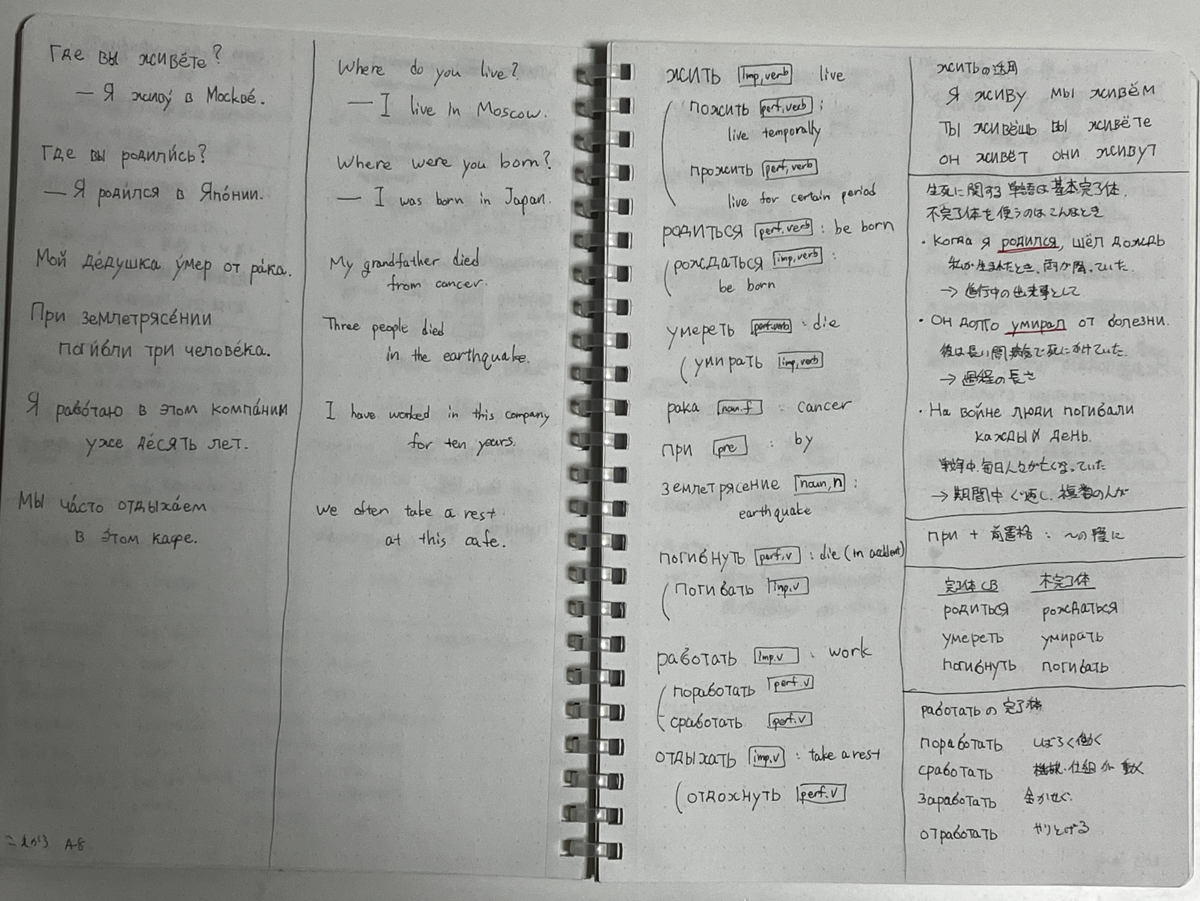 Где вы живёте?
— Я живу́ в Москве́.
Где вы родили́сь?
— Я роди́лся в Япо́нии.
Мой де́душка у́мер от ра́ка.
При землетрясе́нии
поги́бли три челове́ка.
Я рабо́таю в этом компа́нии
уже де́сять лет.
Мы ча́сто отдыха́ем
в э́том кафе.
A-8
Where do you live?
— I live in Moscow.
Where were you born?
— I was born in Japan.
My grandfather died
from cancer.
Three people died
in the earthquake.
I have worked in this company
for ten years.
We often take a rest
at this cafe.
жить imp,verb live
пожить perf,verb :
live temporally
прожить perf,verb
live for certain period
родиться perf,verb : be born
рождаться imp,verb :
be born
умереть perf,verb : die
умирать imp,verb
рака noun.f : cancer
при pre : by
землетрясение noun,n :
earthquake
погибнуть perf.v : die (in accident)
погибать imp.v
работать imp.v : work
поработать perf.v
сработать perf.v
отдыхать imp.v : take a rest
отдохнуть perf.v
житьの活用
я живу мы живём
ты живёшь вы живёте
он живёт они живут
生死に関する単語は基本完了体.
不完了体を使うのはこんなとき
・Когда я родился, шёл дождь
私が生まれたとき、雨が降っていた.
→ 進行中の出来事として
・Он долго умирал от болезни.
彼は長い間病気で死にかけていた.
→ 過程の長さ
・На войне люди погибали
каждый день.
戦争中、毎日人々が亡くなっていた
→ 期間中くり返し、複数の人が
при + 前置格 : 〜の際に
完了体 СВ 不完了体
родиться рождаться
умереть умирать
погибнуть погибать
работатьの完了体
поработать しばらく働く
сработать 機械・仕組が動く
заработать 金かせぐ
отработать やりとげる